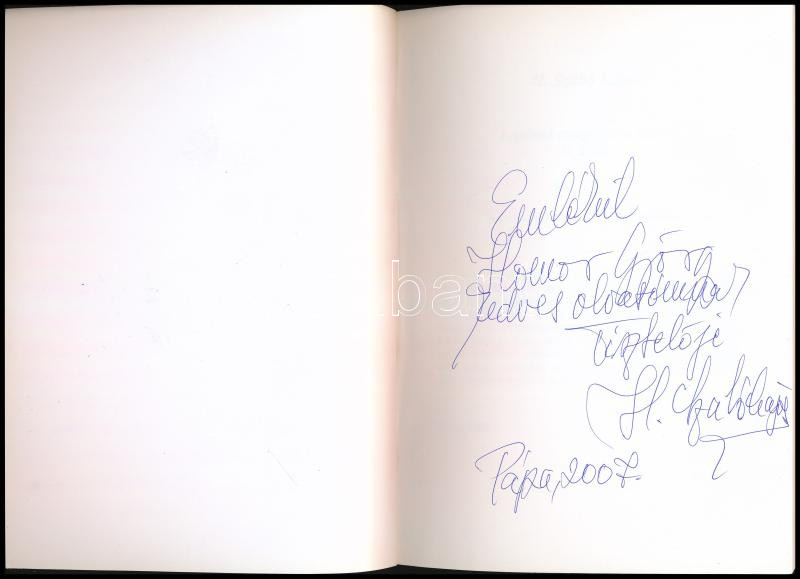 Emlékül
Homor György
kedves olvasómnak
tisztelője
H. Szabó Lajos
Pápa, 2007.